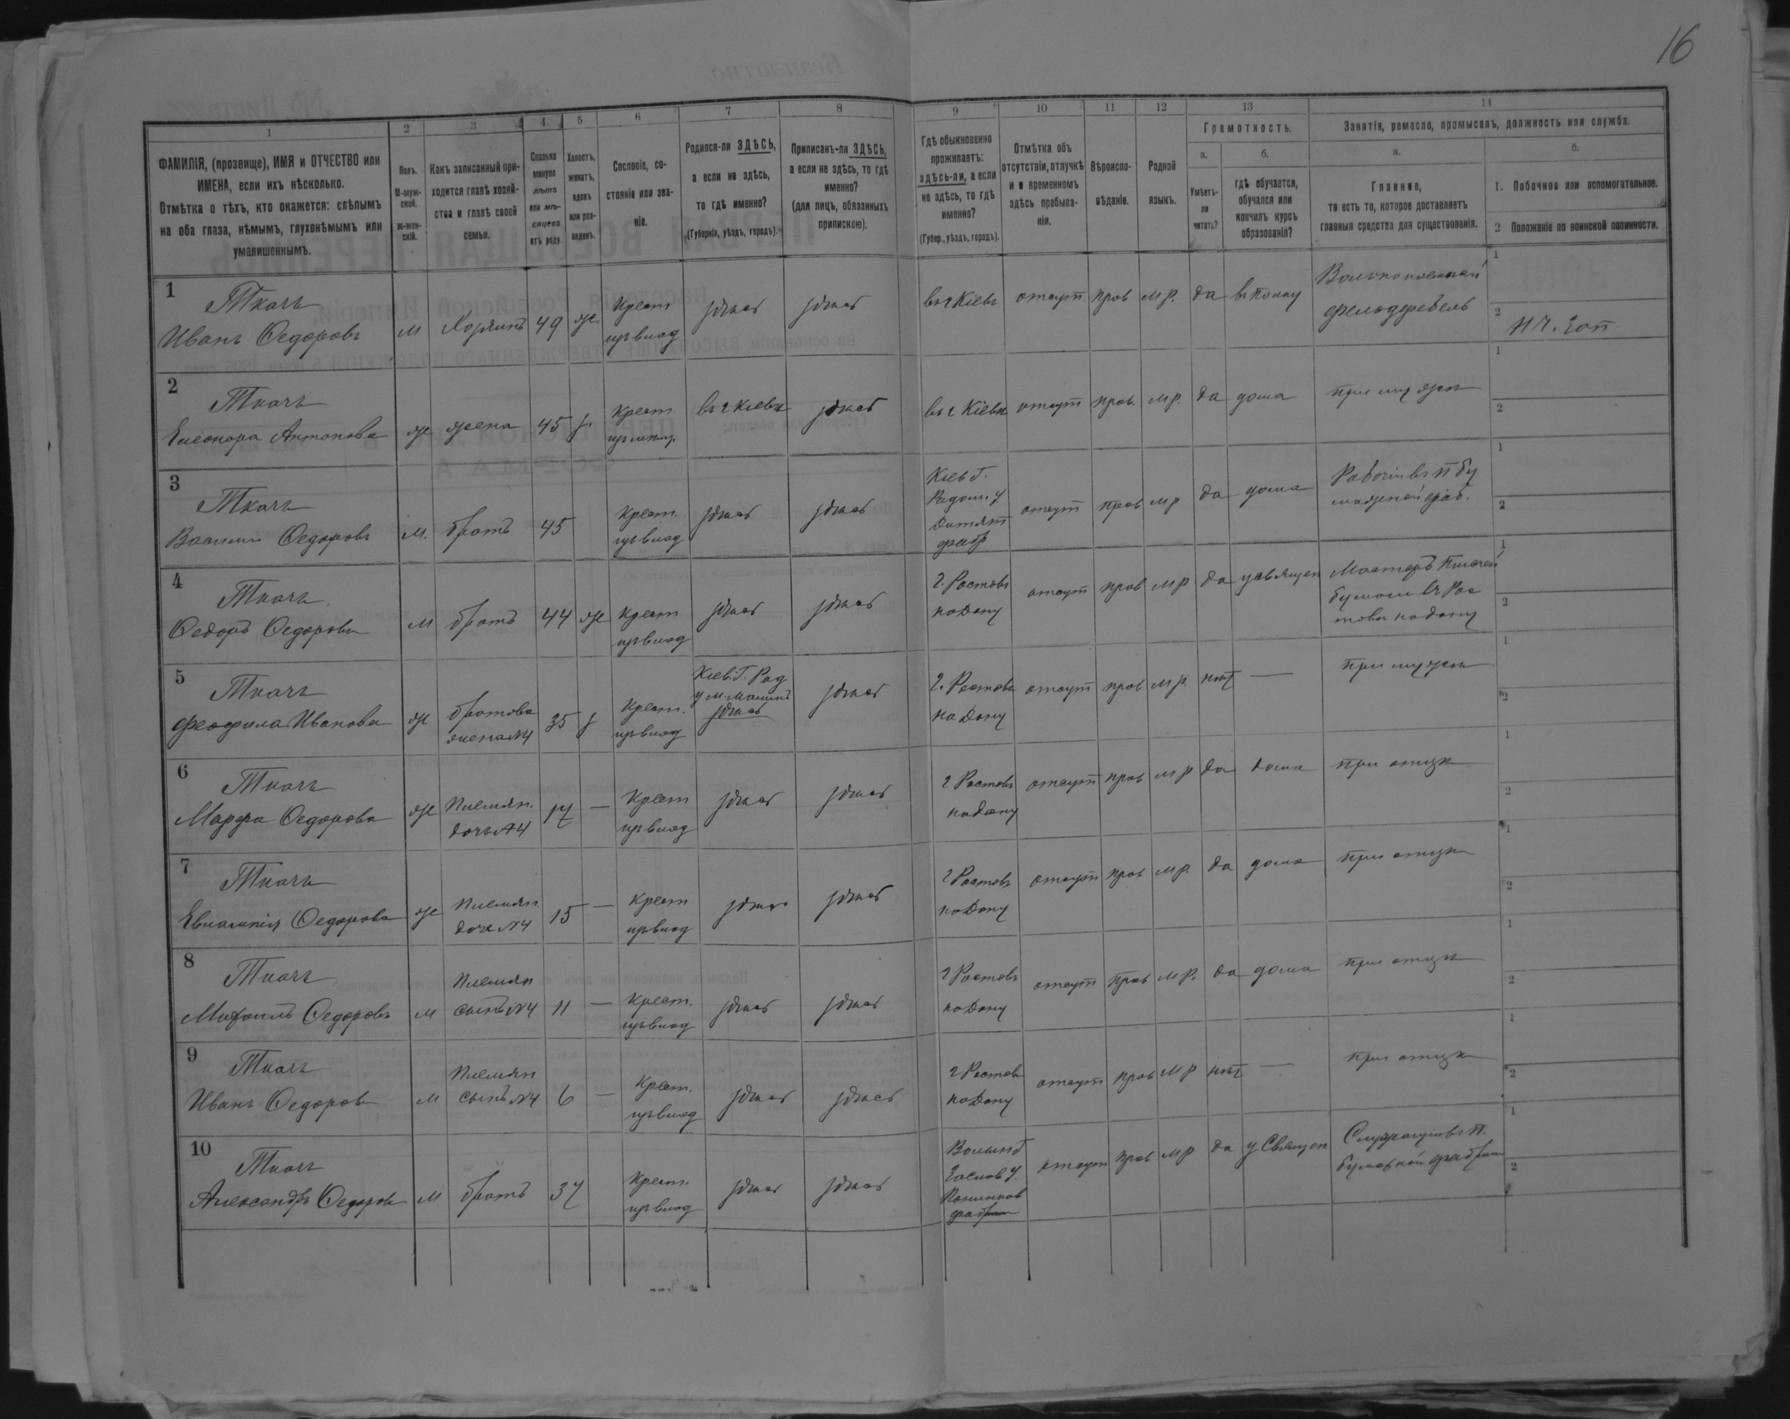 16
1
2
3
4
5
6
7
8
9
10
11
12
13
14
ФАМИЛІЯ, (прозвище), ИМЯ и ОТЧЕСТВО или
ИМЕНА, если ихъ нѣсколько.
Отмѣтка о тѣхъ, кто окажется: слѣпымъ
на оба глаза, нѣмымъ, глухонѣмымъ или
умалишеннымъ.
Полъ.
М-мужской.
Ж-женскій.
Какъ записанный при-
ходится главѣ хозяй-
ства и главѣ своей
семьи.
Сколько
минуло
лѣтъ
или мѣ-
сяцевъ
отъ роду.
Холостъ,
женатъ,
вдовъ
или раз-
веденъ.
Сословіе, со-
стояніе или зва-
ніе.
Родился-ли ЗДѢСЬ,
а если не здѣсь,
то гдѣ именно?
(Губернія, уѣздъ, городъ).
Приписанъ-ли ЗДѢСЬ,
а если не здѣсь, то гдѣ
именно?
(для лицъ, обязанныхъ
припискою).
Гдѣ обыкновенно
проживаетъ:
здѣсь-ли, а если
не здѣсь, то гдѣ
именно?
(Губер., уѣздъ, городъ).
Отмѣтка объ
отсутствіи, отлучкѣ
и о временномъ
здѣсь пребыва-
ніи.
Вѣроиспо-
вѣданіе.
Родной
языкъ.
Грамотность.
а.
Умѣетъ-
ли
читать?
б.
гдѣ обучается,
обучался или
кончилъ курсъ
образованія?
Занятія, ремесло, промыселъ, должность или служба.
а.
Главное,
то есть то, которое доставляетъ
главныя средства для существованія.
б.
1. Побочное или вспомогательное.
2 Положеніе по воинской повинности.
1 Ткачъ
Иванъ Федоровъ м Хозяинъ 49 ж Крест. здѣсь здѣсь въ г Кіевѣ отсут прав м р. да въ полку
фельдфебель
2 Ткачъ
Елеонора Антонова ж жена 45 Крест въ г Кіевѣ здѣсь въ г Кіевѣ отсут прав. м р. да дома при мужѣ
3 Ткачъ
Василій Федоровъ м. братъ 45 Крест здѣсь здѣсь Кіев Г.
Радом. у
Дитят
фабр отсут прав м р да дома Рабочій въ П бу
мажной фаб.
4 Ткачъ
Федоръ Федоровъ м братъ 44 ж Крест здѣсь здѣсь г. Ростовъ
на Дону отсут прав м р да Мастеръ Писчей
бумаги въ Рос
товѣ на дону
5 Ткачъ
Феофила Иванова ж братова
жена №4 35 Крест. Кіев Г. Рад
здѣсь здѣсь г. Ростовъ
на Дону отсут прав м р нѣт — при мужѣ
6 Ткачъ
Марфа Федорова ж племян.
дочь №4 17 — Крест здѣсь здѣсь г Ростовъ
на Дону отсут прав м р да дома при отцѣ
7 Ткачъ
Евлампія Федорова ж племян
дочь №4 15 — Крест здѣсь здѣсь г Ростовъ
на Дону отсут прав м р. да дома при отцѣ
8 Ткачъ
Михаилъ Федоровъ м племян
сынъ №4 11 — Крест. здѣсь здѣсь г Ростовъ
на Дону отсут прав м р. да дома при отцѣ
9 Ткачъ
Иванъ Федоровъ м племян
сынъ №4 6 — Крест. здѣсь здѣсь г Ростовъ
на Дону отсут прав м р нѣт — при отцѣ
10 Ткачъ
Александръ Федоровъ м братъ 37 Крест. здѣсь здѣсь Волын Г
Заслав У.
фабрик отсут прав м р да у Священ Служащій въ П.
бумажной фабрик